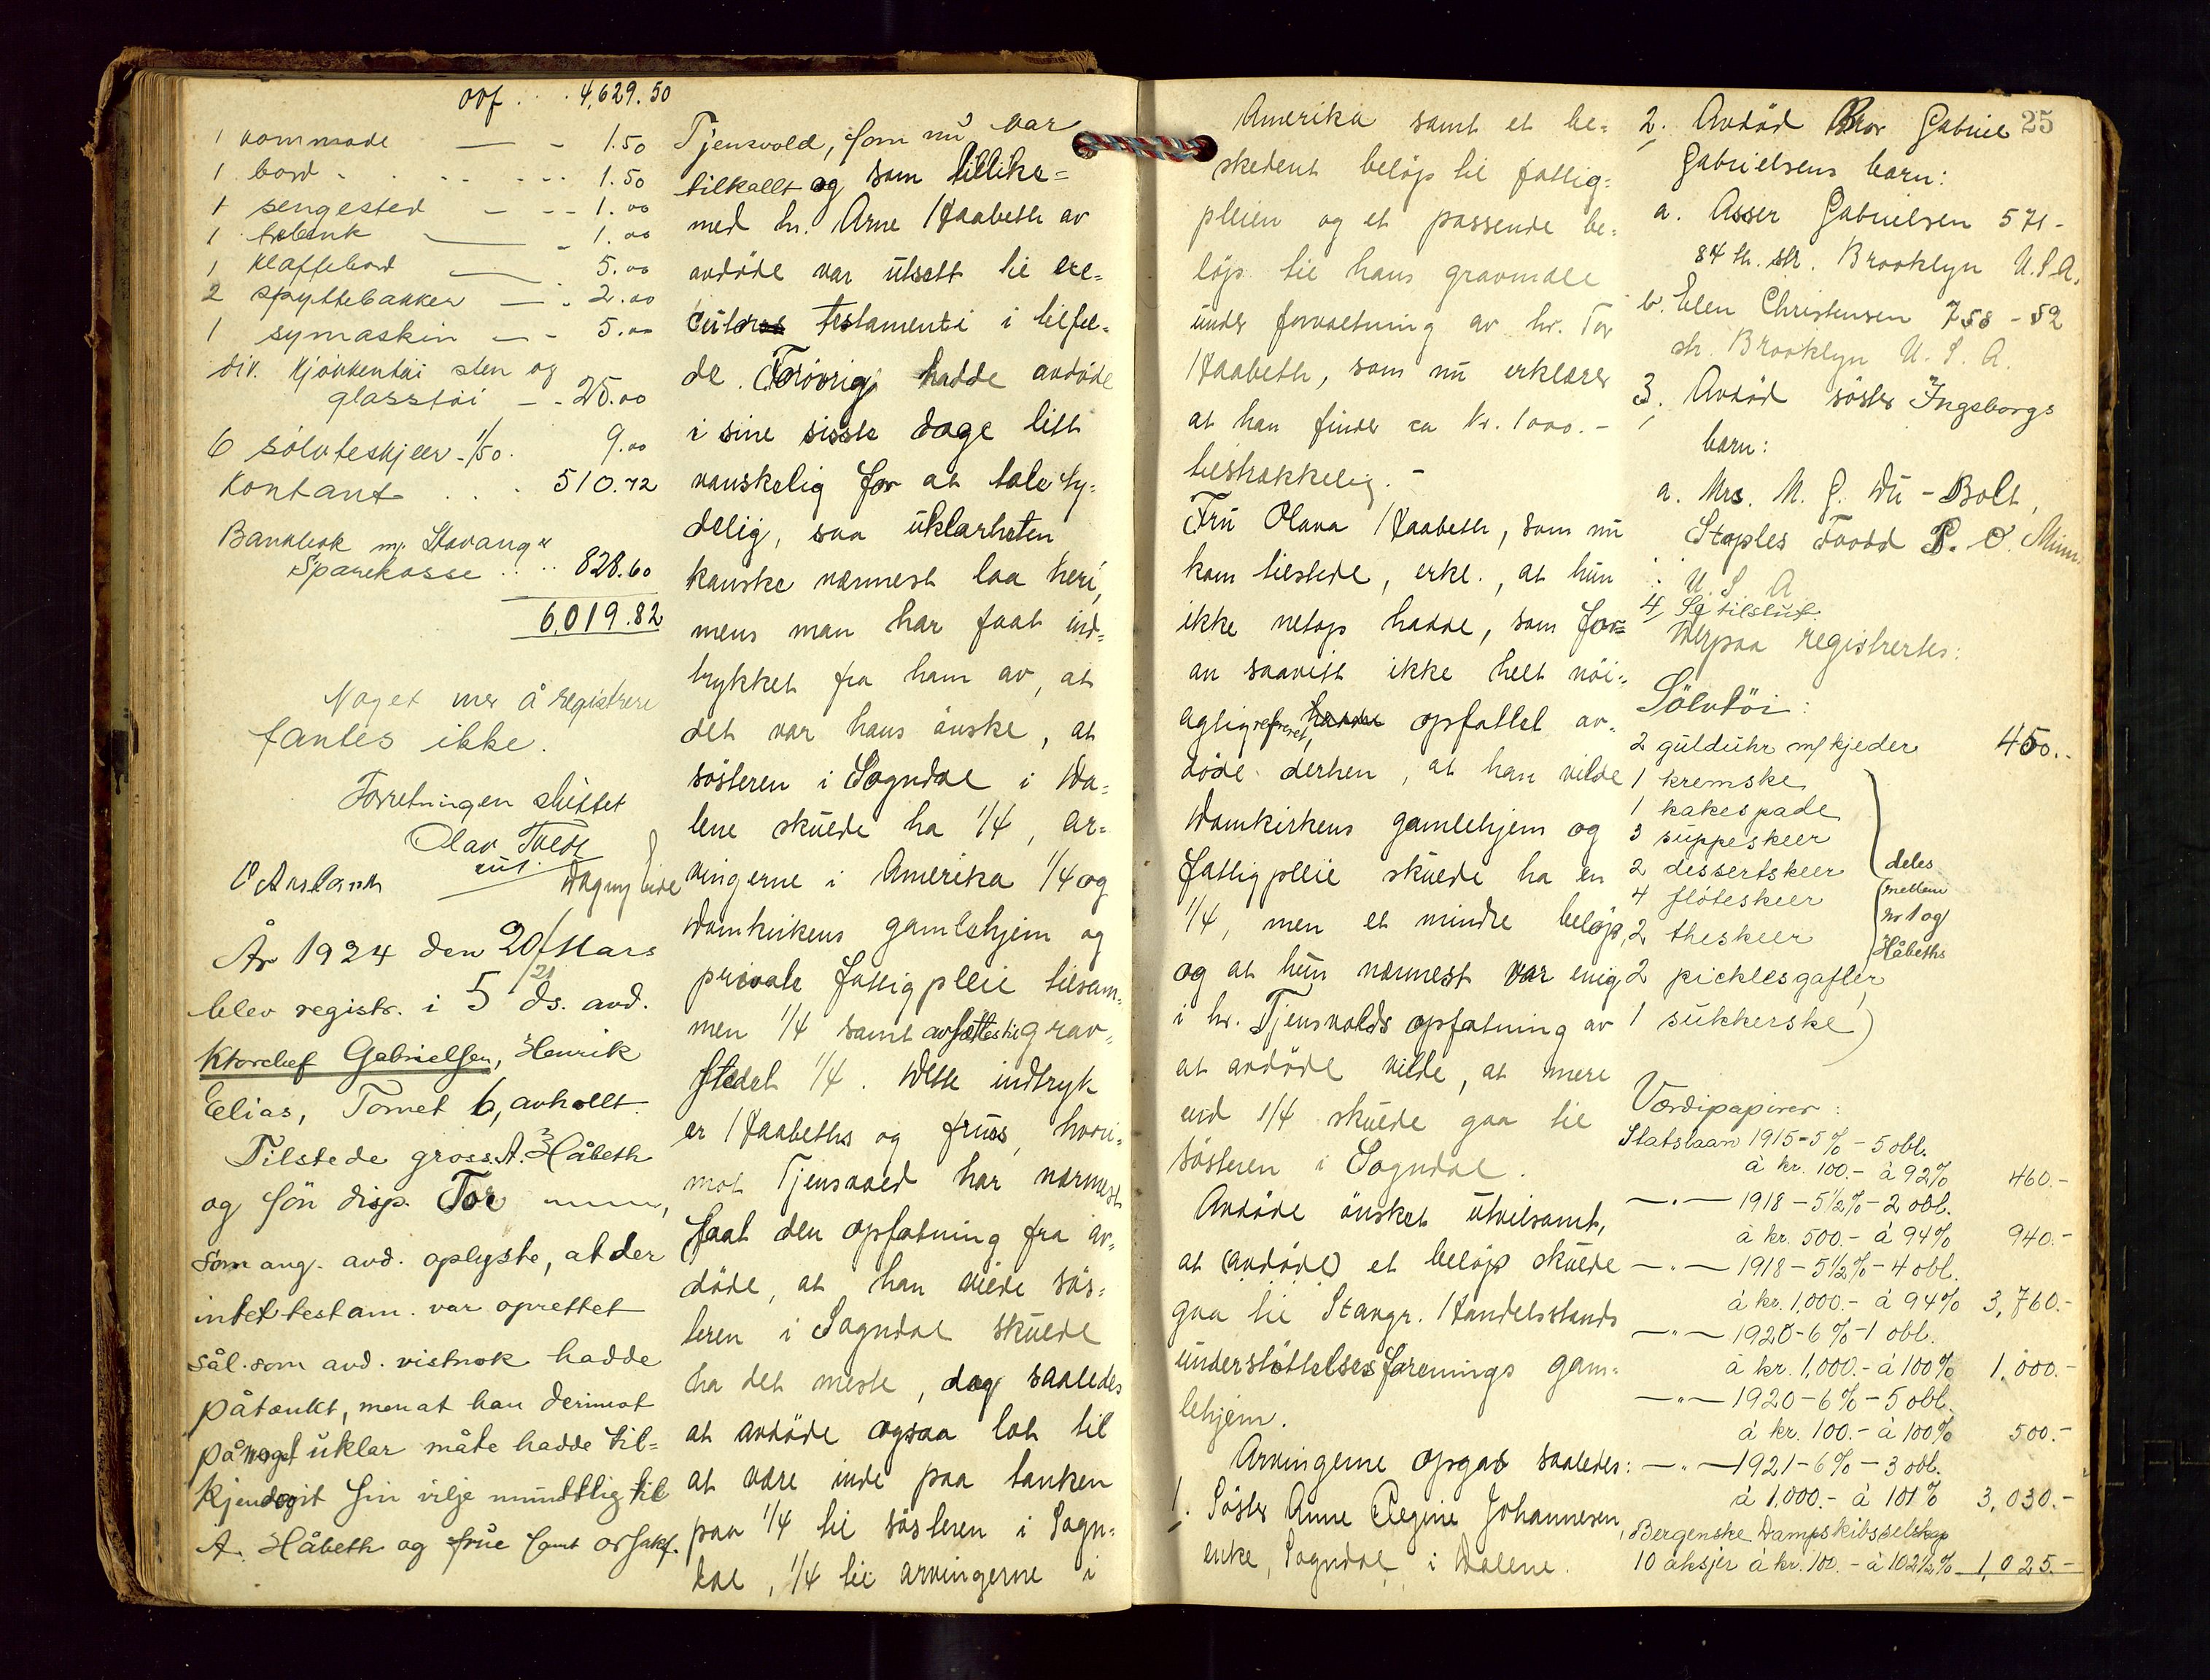 ovf . . . 4,629.50
1 kommode — - 1.50
1 bord . . . - - - 1.50
1 sengested - - - 1.00
1 — - 1.00
1 klaffebord — 5.00
2 spyttebakker — - 2.00
1 symaskin — - 5.00
div. kjökkentöi sten og
glasstöi — - 25.00
6 sölvteskjeer - 1/50 . 9.00
Kontant . . . 510.72
Bankbok m/ Stavang"
Sparekasse . . . . 828.60
6,019.82
Noget mer å registrere
fantes ikke.
Forretningen sluttet
Olav Tvedt
Dagny Eide
År 1924 den 20/ Mars
/21
blev registr. i 5 ds. avd.
Ktorchef Gabrielsen, Henrik
Elias, Tornet 6, avholdt.
Tilstede gross. A. Håbeth
og sön disp. Tor
som ang. avd. oplyste, at der
intet testam. var oprettet
sål. som avd. vistnok hadde
påtænkt, men at han derimot
på noget uklar måte hadde til=
kjendegit sin vilje mundtlig til
A. Håbeth og frue samt orsakf.
Tjensvold, som nu var
tilkallt og som tillike=
med hr. Arne Haabeth av
avdöde var utsett til exe=
cutores testamenti i tilfel=
de. Forövrig hadde avdöde
i sine sisste dage litt
vanskelig for at tale ty=
delig, saa uklarheten
kanske nærmest laa heri,
mens man har faat ind=
trykket fra ham av, at
det var hans önske, at
sösteren i Sogndal i Da=
lene skulde ha 1/4, ar=
vingerne i Amerika 1/4 og
Domkirkens gamlehjem og
private fattigpleie tilsam=
men 1/4 samt avsættes til grav=
stedet 1/4. Dette indtryk
er Haabeths og frues, hvori=
mot Tjensvold har nærmest
faat den opfatning fra av=
döde, at han vilde sös=
teren i Sogndal skulde
ha det meste, dog saaledes
at avdöde ogsaa lot til
at være inde paa tanken
paa 1/4 til sösteren i Sogn=
dal, 1/4 til arvingerne i
Amerika samt et be=
skedent belöp til fattig=
pleien og et passende be=
löp til hans gravmæle
under forvaltning av hr. Tor
Haabeth, som nu erklærer
at han finder ca kr. 1000.-
tilstrækkelig.-
Fru Olava Haabeth, som nu
kom tilstede, erkl., at hun
ikke netop hadde, som for=
an saavitt ikke helt nöi=
agtig referert, hadde opfattet av=
döde derhen, at han vilde
Domkirkens gamlehjem og
fattigpleie skulde ha en
1/4, men et mindre belöp,
og at hun nærmest var enig
i hr. Tjensvolds opfatning av
at avdöde vilde, at mere
end 1/4 skulde gaa til
sösteren i Sogndal.
Avdöde önsket utvilsomt,
at (avdöde) et belöp skulde
gaa til Stavgr. Handelsstands
understöttelsesforenings gam=
lehjem.
Arvingerne opgas saaledes:
1. Söster Anne Regine Johannesen,
enke, Sogndal i Dalene.
25
2. Avdöd Bror Gabriel
Gabrielsens barn:
a. Asser Gabrielsen 571 -
84 th. str. Brooklyn U.S.A.
b. Elen Christensen 758 - 52
str. Brooklyn U. S. A.
3. Avdöd söster Ingeborgs
barn:
a. Mrs. M. G. Du - Bolt,
Staples P. O. Minn.
U. S. A
4, Se tilslut.
Derpaa registrertes:
Sölvtöi:
2 gulduhr m/ kjeder 450..
1 kremske
1 kakespade
3 suppeskeer
2 dessertskeer
4 flöteskeer
2 theskeer
2 picklesgafler
1 sukkerske
deles
mellem
nr 1 og
Håbeths
Værdipapirer:
Statslaan 1915 - 5% - 5 obl.
à kr. 100.- à 92% 460.-
— " — 1918 - 5 1/2% - 2 obl.
à kr. 500.- à 94% 940.-
— " — 1918 - 5 1/2% - 4 obl.
à kr. 1,000.- à 94% 3,760.-
— " — 1920 - 6% - 1 obl.
à kr. 1,000.- à 100% 1,000.-
— " — 1920 - 6% - 5 obl.
à kr. 100.- à 100% 500.-
— " — 1921 - 6% - 3 obl.
à 1,000.- à 101% 3,030.-
Bergenske Dampskibsselskap
10 aksjer à kr. 100.- à 102 1/2% 1,025.-